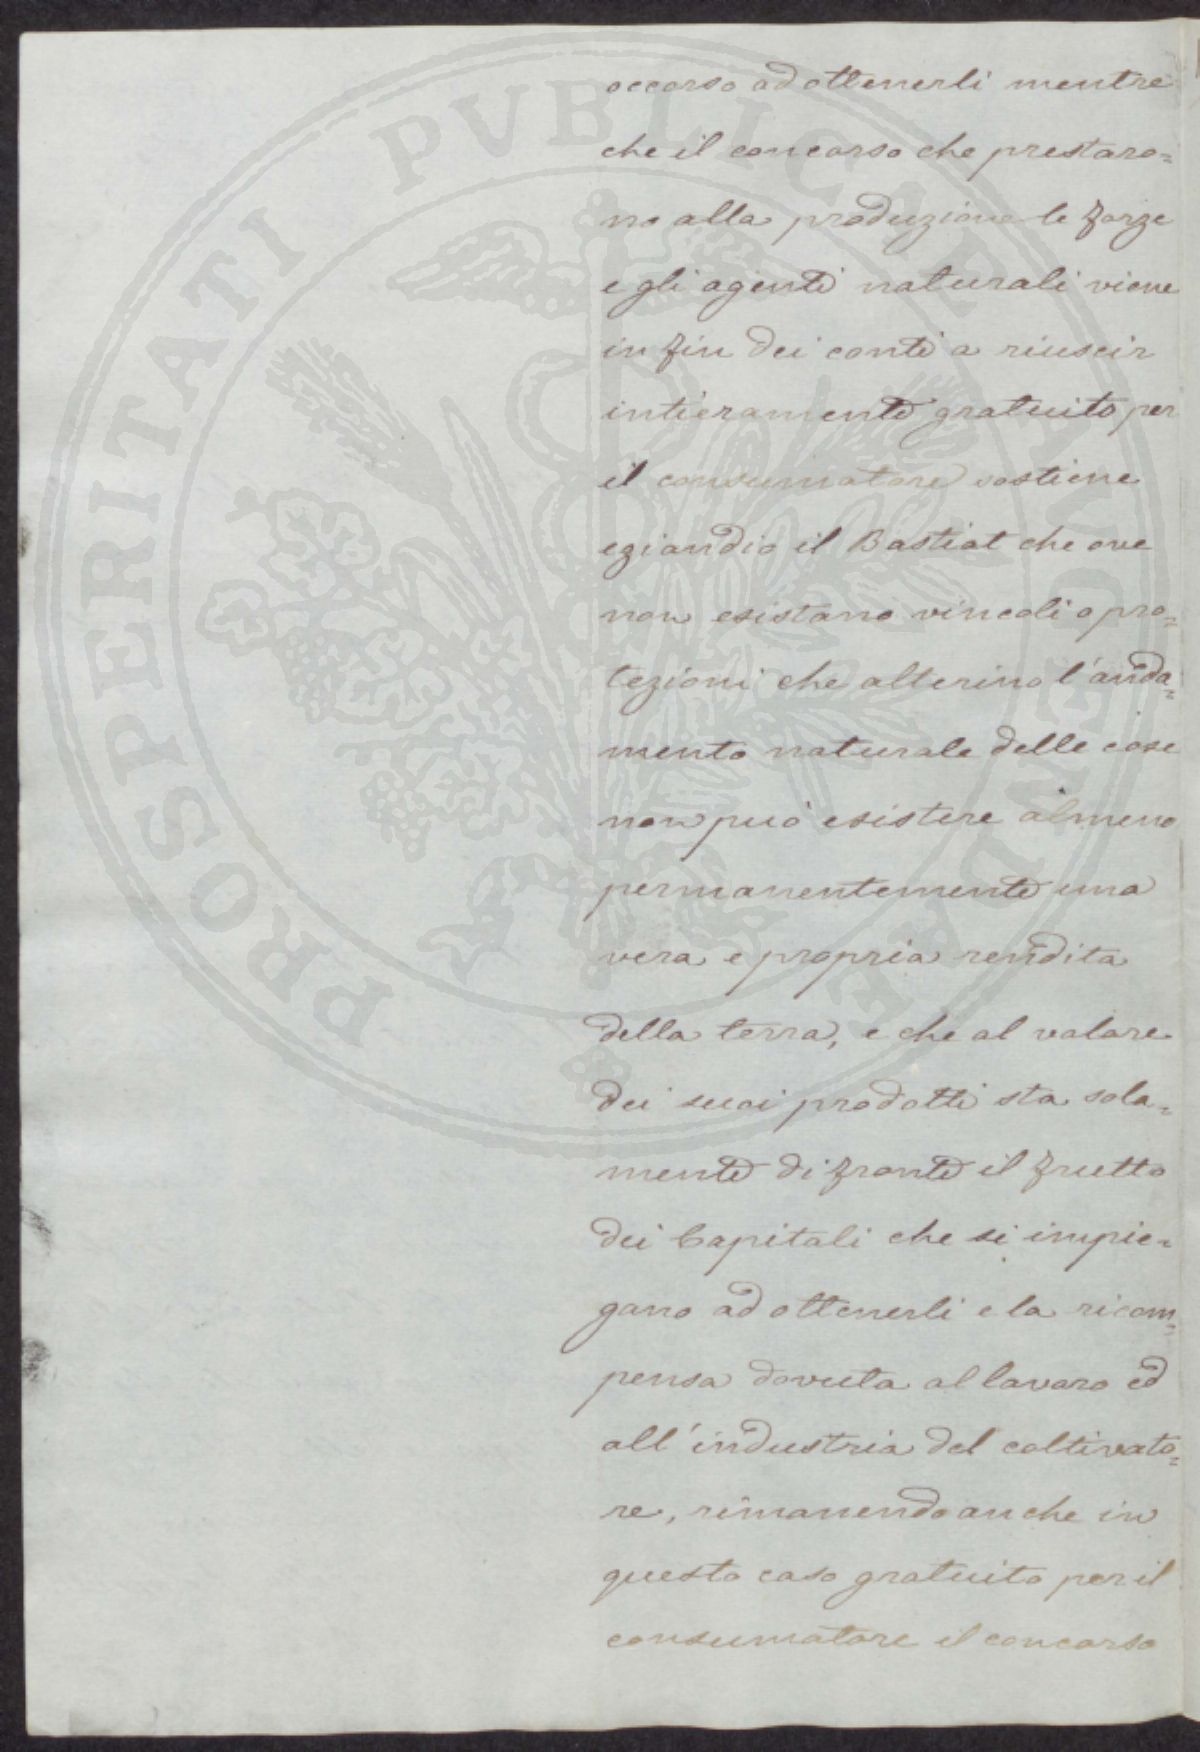 occorso ad ottenerli mentre
che il concorso che prestaro=
no alla produzione le forze
e gli agenti naturali viene
in fin dei conti a riuscir
intieramente gratuito per
il consumatore sostiene
eziandio il Bastiat che ove
non esistano vincoli o pro=
tezioni che alterino l'anda=
mento naturale delle cose
non può esistere almeno
permanentemente una
vera e propria rendita
della terra, e che al valore
dei suoi prodotti sta sola=
mente di fronte il frutto
dei Capitali che si impie=
gano ad ottenerli e la ricom=
pensa dovuta al lavoro ed
all'industria del coltivato=
re, rimanendo anche in
questo caso gratuito per il
consumatore il concorso
PROSPERITATI PVBLICAE AVGENDAE